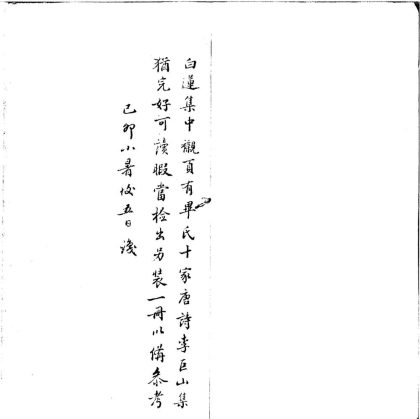 白蓮集中襯頁有畢氏十家唐詩李巨山集
猶完好可讀暇當檢出另裝一冊以備參考
己卯小暑後五日後